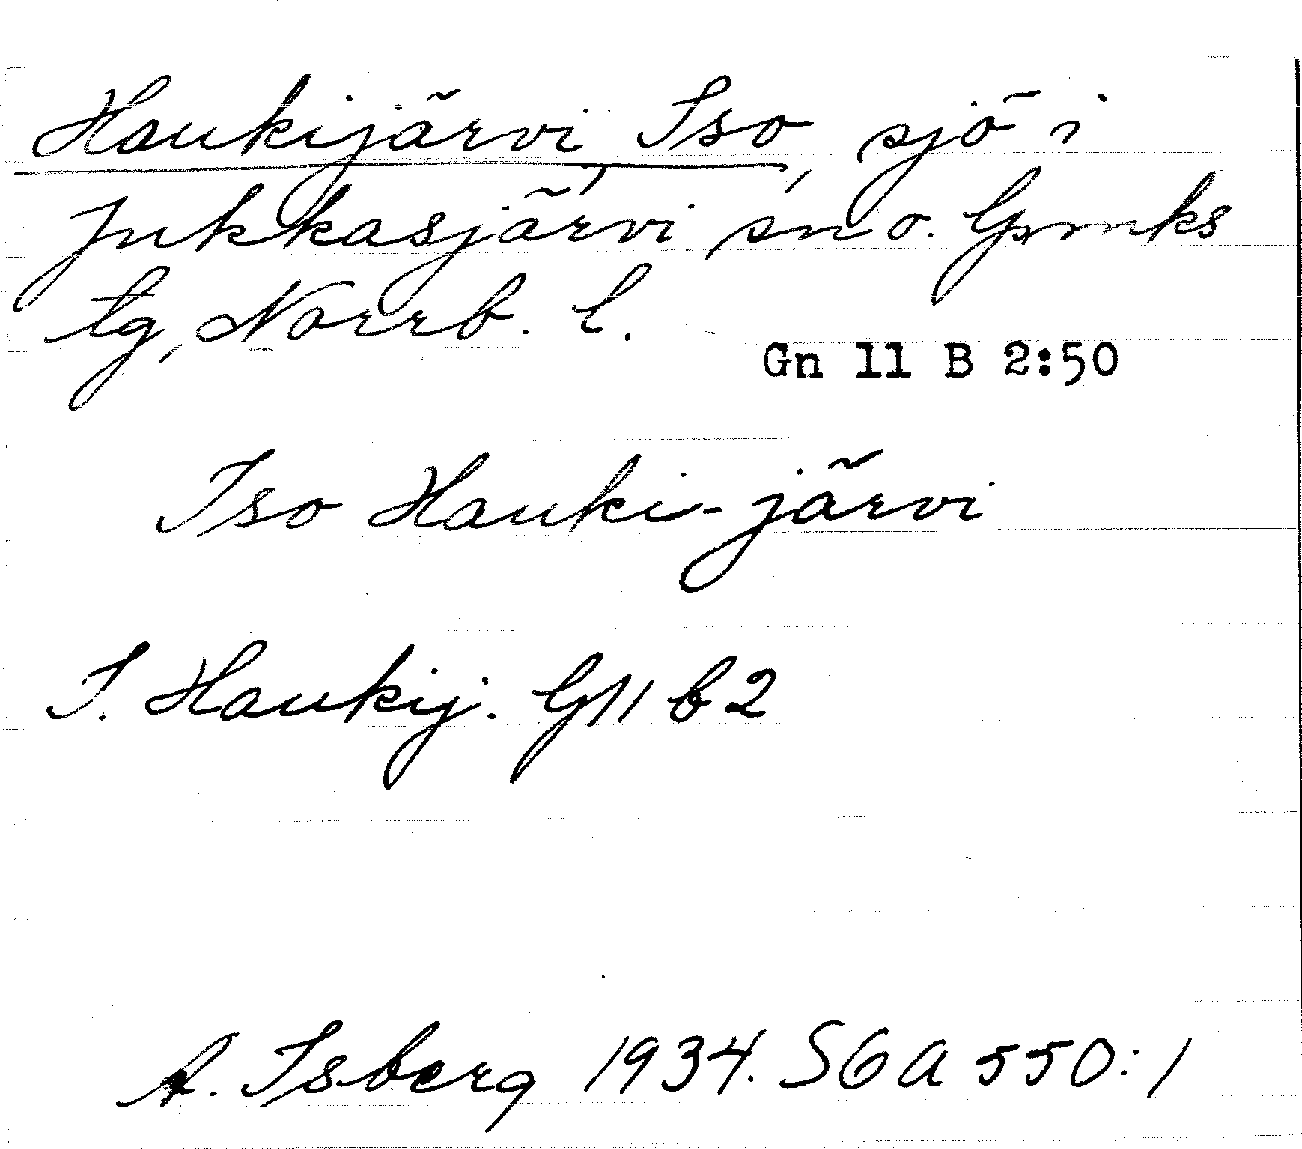 Haukijärvi, Iso, sjö i
Jukkasjärvi sn o. Gvmks
tg, Norrb. l.
Gn 11 B 2:50
Iso Hauki-järvi
I. Haukij. G11 b 2
A. Isberg 1934. SGA 550:1